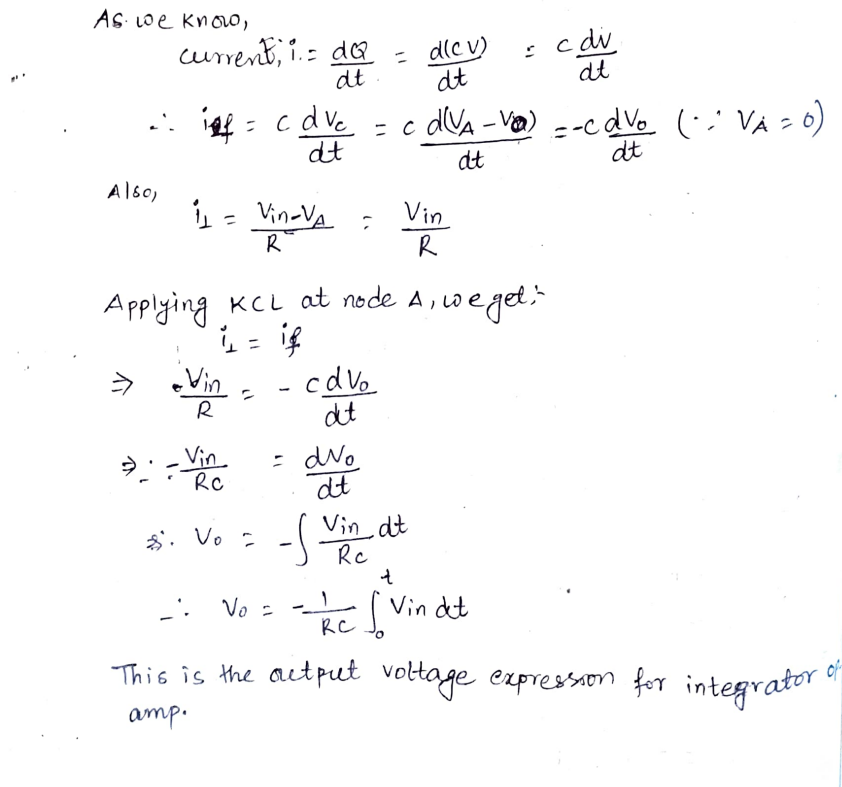 As we know,
current, i = dQ/dt = d(CV)/dt = c dv/dt
∴ if = c dVc/dt = c d(VA - Vo)/dt = -c dVo/dt (∵ VA = 0)
Also,
i1 = Vin-VA/R = Vin/R
Applying KCL at node A, we get:-
i1 = if
⇒ Vin/R = - c dVo/dt
⇒ ∴ - Vin/RC = dVo/dt
∴ Vo = -∫ Vin/RC dt
∴ Vo = - 1/RC ∫₀ᵗ Vin dt
This is the output voltage expression for integrator op
amp.